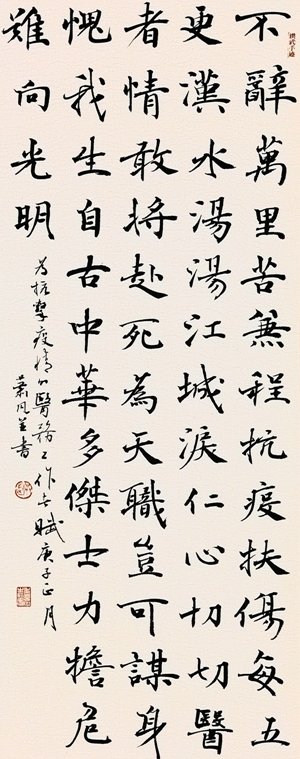 不辭萬里苦兼程抗疫扶傷每五
更漢水湯湯江城淚仁心切切醫
者情敢將赴死為天職豈可謀身
愧我生自古中華多傑士力擔危
難向光明
為抗擊疫情的醫務工作者賦庚子正月
蕭風並書